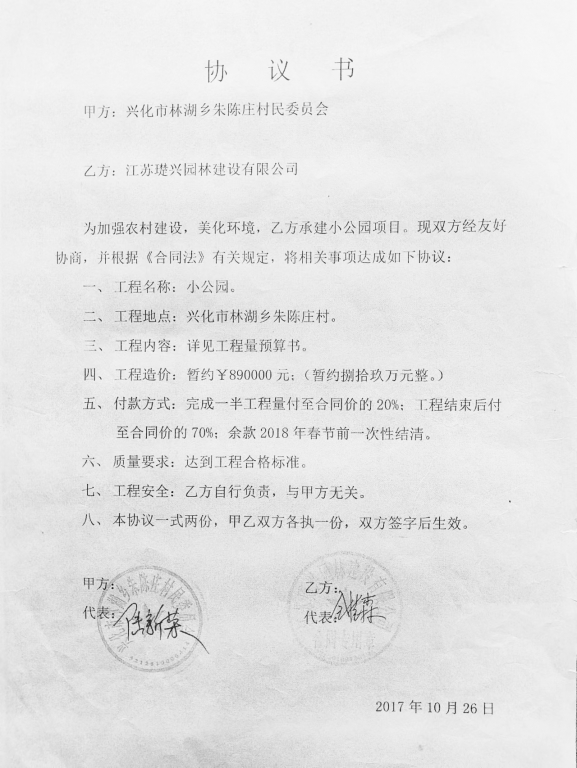 协 议 书
甲方：兴化市林湖乡朱陈庄村民委员会
乙方：江苏璟兴园林建设有限公司
为加强农村建设，美化环境，乙方承建小公园项目。现双方经友好
协商，并根据《合同法》有关规定，将相关事项达成如下协议：
一、工程名称：小公园。
二、工程地点：兴化市林湖乡朱陈庄村。
三、工程内容：详见工程量预算书。
四、工程造价：暂约￥890000 元；（暂约捌拾玖万元整。）
五、付款方式：完成一半工程量付至合同价的 20%；工程结束后付
至合同价的 70%；余款 2018 年春节前一次性结清。
六、质量要求：达到工程合格标准。
七、工程安全：乙方自行负责，与甲方无关。
八、本协议一式两份，甲乙双方各执一份，双方签字后生效。
甲方：
乙方：
代表：
代表：
2017 年 10 月 26 日